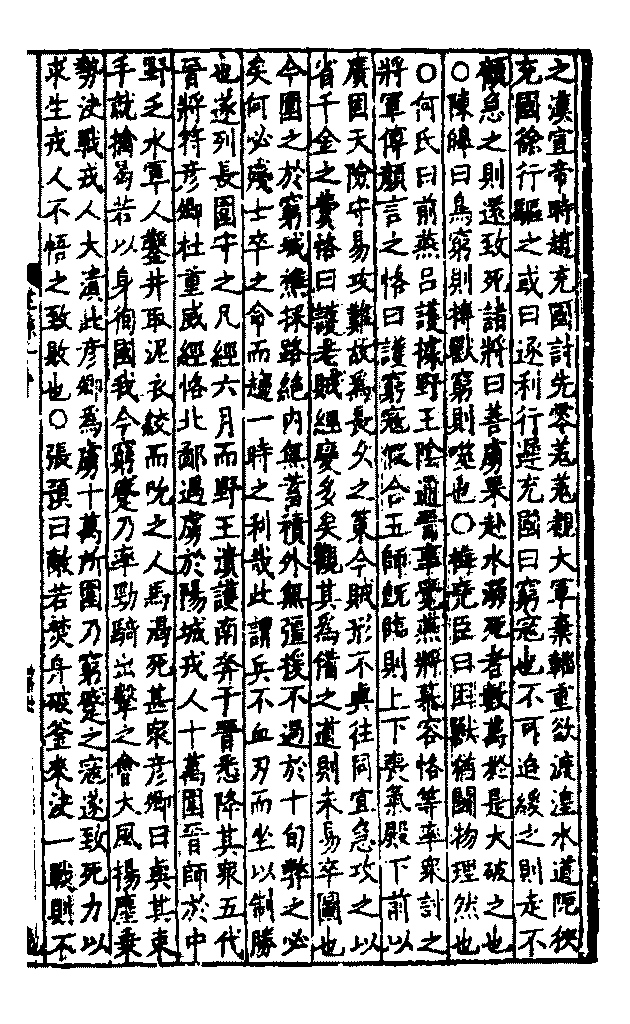 之漢宣帝時趙充國討先零羌羌觀大軍棄輜重欲渡湟水道阨狹
充國徐行驅之或曰逐利行遲充國曰窮寇也不可迫緩之則走不
顧急之則還致死諸將曰善虜果赴水溺死者數萬於是大破之也
○陳皥曰鳥窮則搏獸窮則噬也○梅堯臣曰困獸猶鬪物理然也
○何氏曰前燕呂護據野王陰通晉事覺燕將慕容恪等率衆討之
將軍傅顏言之恪曰護窮寇假合五師旣臨則上下喪氣殿下前以
廣固天險守易攻難故爲長久之策今賊形不與往同宜急攻之以
省千金之費恪曰護老賊經變多矣觀其爲備之道則未易卒圖也
今圍之於窮城樵採路絶內無蓄積外無强援不過於十旬弊之必
矣何必殘士卒之命而趨一時之利哉此謂兵不血刃而坐以制勝
也遂列長圍守之凡經六月而野王潰護南奔于晉悉降其衆五代
晉將符彥卿杜重威經恪北鄙遇虜於陽城戎人十萬圍晉師於中
野乏水軍人鑿井取泥衣絞而吮之人馬渴死甚衆彥卿曰與其束
手就擒曷若以身徇國我今窮蹙乃率勁騎出擊之會大風揚塵乘
勢決戰戎人大潰此彥卿爲虜十萬所圍乃窮蹙之寇遂致死力以
求生戎人不悟之致敗也○張預曰敵若焚身破釜來決一戰則不